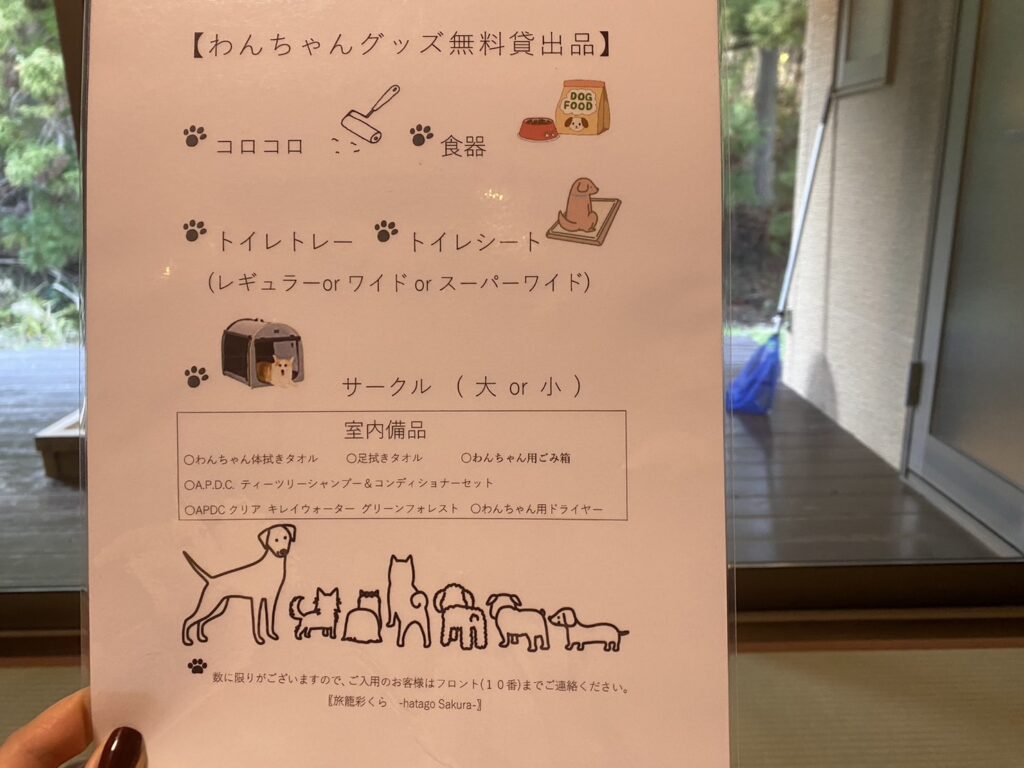 【わんちゃんグッズ無料貸出品】
コロコロ
食器
DOG FOOD
トイレトレー
トイレシート
(レギュラーor ワイド or スーパーワイド)
サークル ( 大 or 小 )
室内備品
○わんちゃん体拭きタオル ○足拭きタオル ○わんちゃん用ごみ箱
○A.P.D.C. ティーツリーシャンプー＆コンディショナーセット
○APDC クリア キレイウォーター グリーンフォレスト ○わんちゃん用ドライヤー
数に限りがございますので、ご入用のお客様はフロント(１０番)までご連絡ください。
〖旅籠彩くら -hatago Sakura-〗